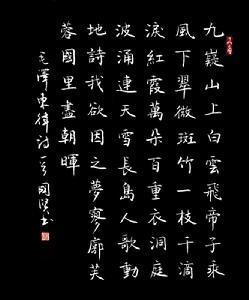 九嶷山上白雲飛帝子乘
風下翠微斑竹一枝千滴
淚紅霞萬朵百重衣洞庭
波涌連天雪長島人歌動
地詩我欲因之夢寥廓芙
蓉國里盡朝暉
毛澤東律詩一首國書